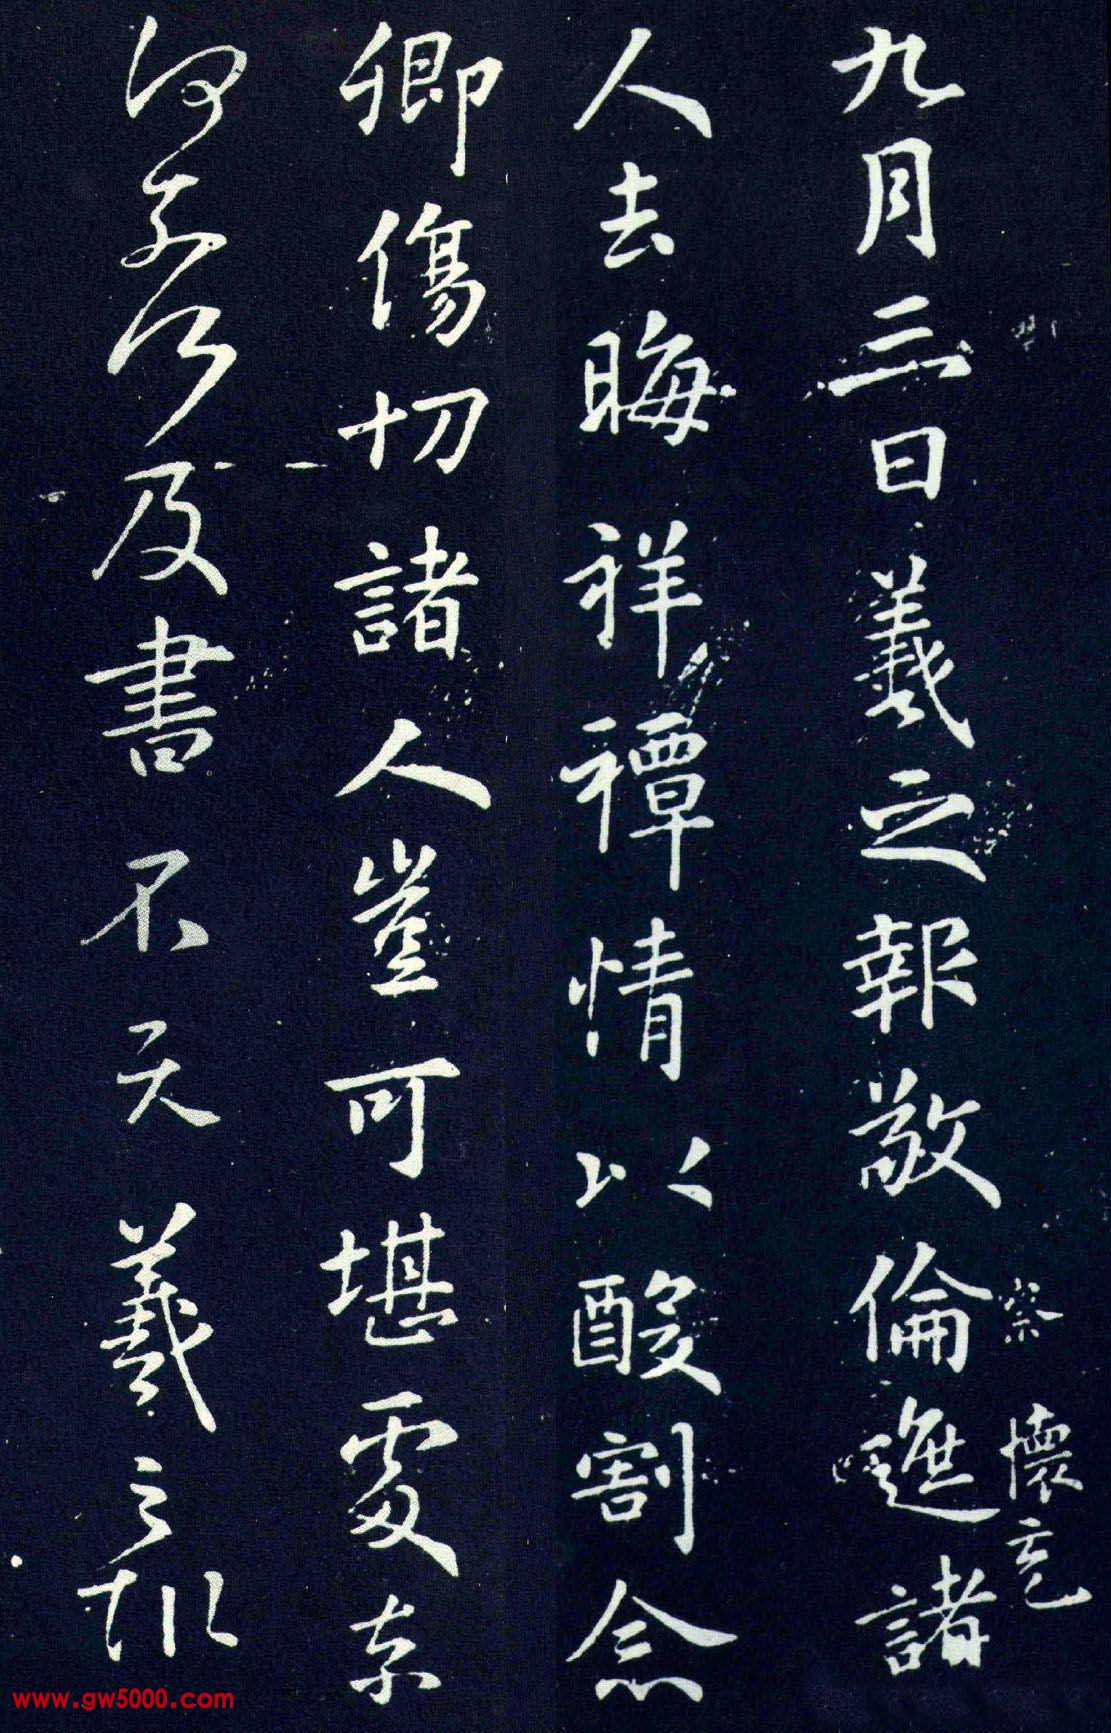 九月三日羲之報敬倫遮諸
察 懷充
人去晦祥禫情以酸割念
卿傷切諸人豈可堪處奈
何奈何及書不羲之報
www.gw5000.com